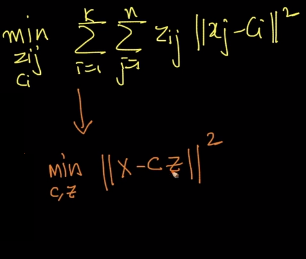 min zij ci K Σ i=1 n Σ j=1 zij ||xj - ci||²
min c,z ||X - CZ||²